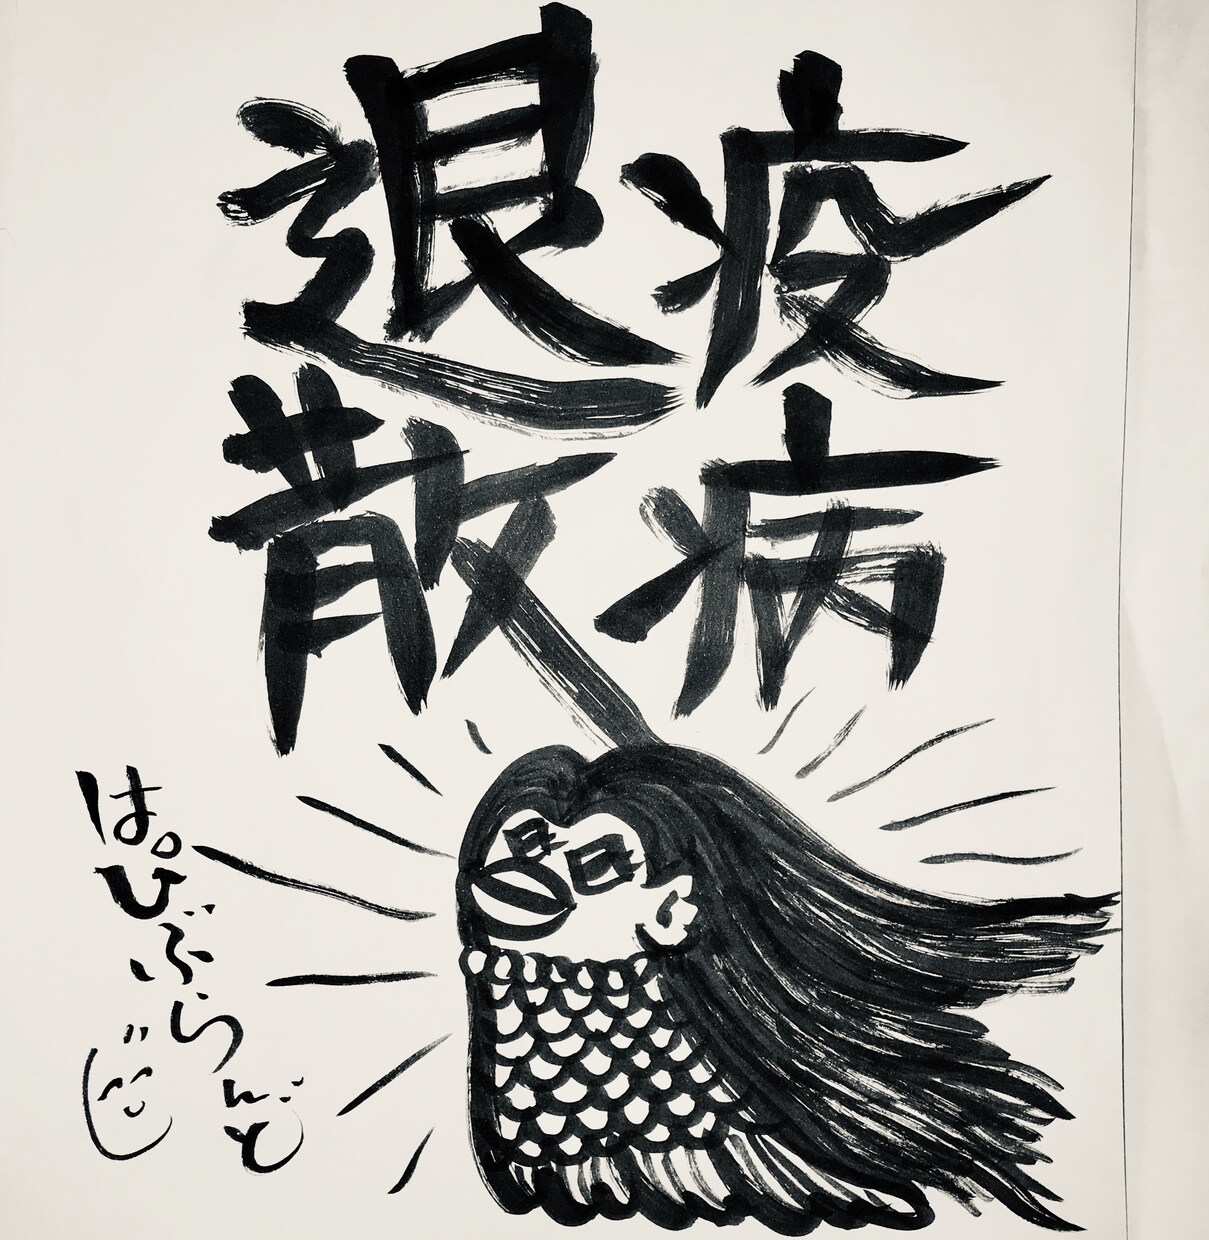 疫病
退散
はぴぶらんど